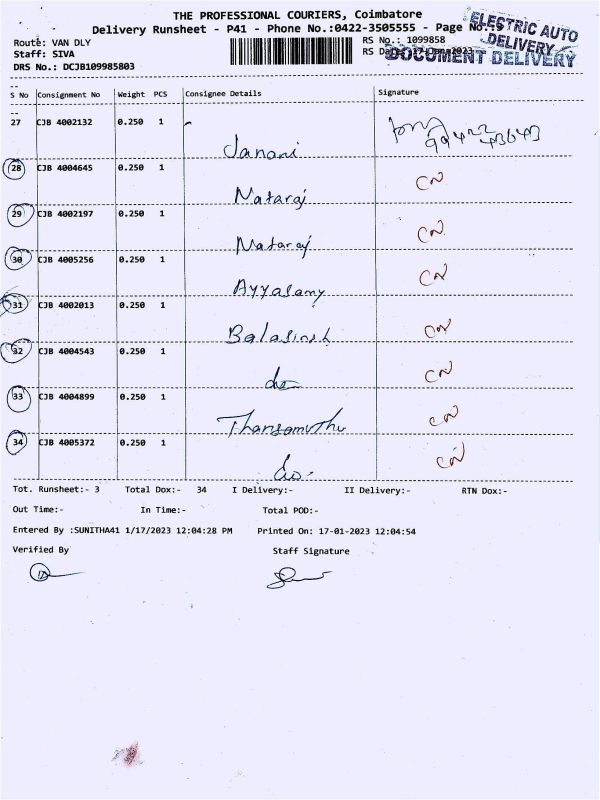 THE PROFESSIONAL COURIERS, Coimbatore
Delivery Runsheet - P41 - Phone No.:0422-3505555 - Page No.:5
ELECTRIC AUTO
DELIVERY
DOCUMENT DELIVERY
Route: VAN DLY
RS No.: 1099858
Staff: SIVA
RS Date: 17-Jan-2023
DRS No.: DCJB109985803
S No Consignment No Weight PCS Consignee Details Signature
27 CJB 4002132 0.250 1
Janani 99422 43643
28 CJB 4004645 0.250 1
Nataraj CN
29 CJB 4002197 0.250 1
Nataraj CN
30 CJB 4005256 0.250 1
Ayyasamy CN
31 CJB 4002013 0.250 1
CN
32 CJB 4004543 0.250 1
do CN
33 CJB 4004899 0.250 1
CN
34 CJB 4005372 0.250 1
do CN
Tot. Runsheet:- 3 Total Dox:- 34 I Delivery:- II Delivery:- RTN Dox:-
Out Time:- In Time:- Total POD:-
Entered By :SUNITHA41 1/17/2023 12:04:28 PM Printed On: 17-01-2023 12:04:54
Verified By Staff Signature